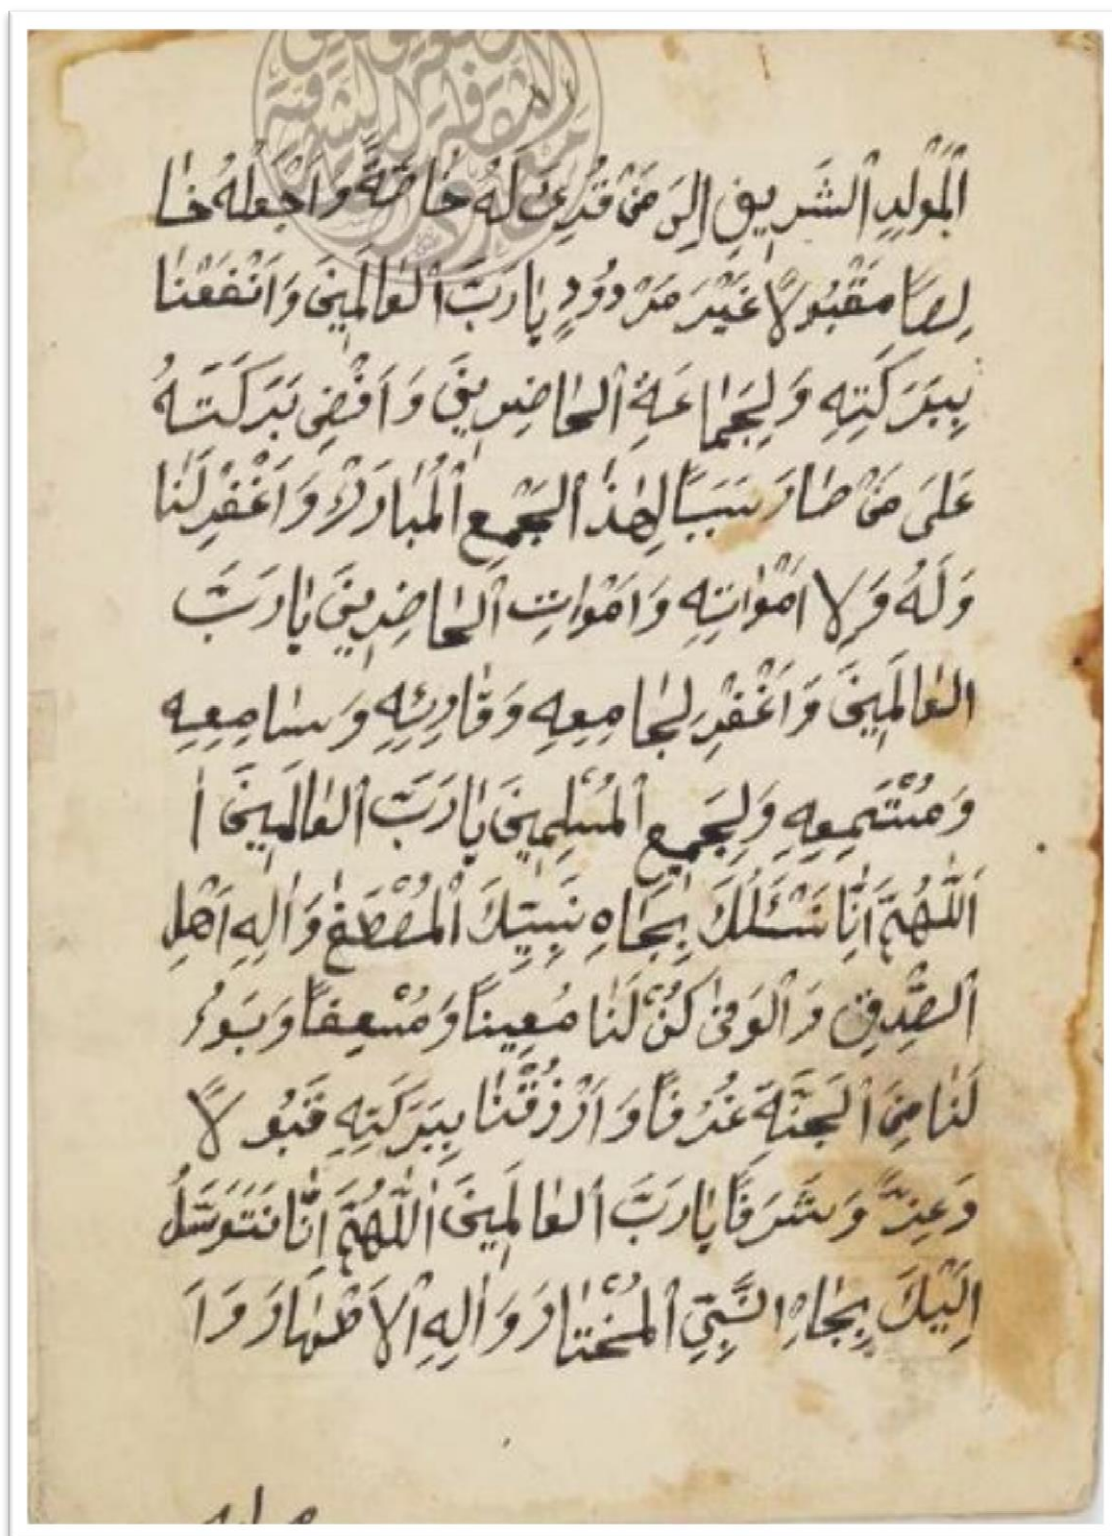 اَلْمَوْلِدِ اَلشَّرِيفِ اِلىَ مَنْ قُرِئَ لَهُ خٰاصَّةً وَاَجْعَلْهُ خٰا
لِصًا مَقْبُولاً غَيْرَ مَرْدوُدٍ يٰارَبَّ اَلْعٰالَمِينَ وَاَنْفَعْنٰا
بِبَرَكَتِهِ وَلِجَمٰاعَةِ اَلحٰاضِرِينَ وَاَفْضِ بَرَكَتَهُ
عَلىَ مَنْ صٰارَ سَبَبًا لِهٰذَا اَلجَمْعِ اَلْمُبٰارَكْ وَاَغْفِرْ لَنٰا
وَلَهُ وَلِاَمْوٰاتِهِ وَاَمْوٰاتِ اَلحٰاضِرِينَ يٰارَبَّ
العٰالَمِينَ وَاَغْفِرْ لِجٰامِعِهِ وَقٰارِئِهِ وَسٰامِعِهِ
وَمُسْتَمِعِهِ وَلِجَمِيعِ اَلمُسْلِمِينَ يٰارَبَّ اَلعٰالَمِينَ اٰ
اَللّٰهُمَّ اِنّٰا نَسْئَلُكَ بِجٰاهِ نَبِيِّكَ اَلْمُصْطَفىٰ وَاٰلِهِ اَهْلِ
اَلصِّدْقِ وَاَلوَفىٰ كُنْ لَنٰا مُعِينًا وَمُسْعِفًا وَبَوِءْ
لَنٰا مِنَ اَلجَنَّةِ غُرَفًا وَاَرْزُقْنٰا بِبَرَكَتِهِ قَبُولاً
وَعِزًّ وَشَرَفًا يٰارَبَّ اَلعٰالَمِينَ اَللّٰهُمَّ اِنّٰا نَتَوَسَّلُ
اِلَيْكَ بِجٰاهِ النَّبِيِّ اَلمُخْتٰارَ وَاٰلِهِ اَلْاَطْهٰارَ وَاَ